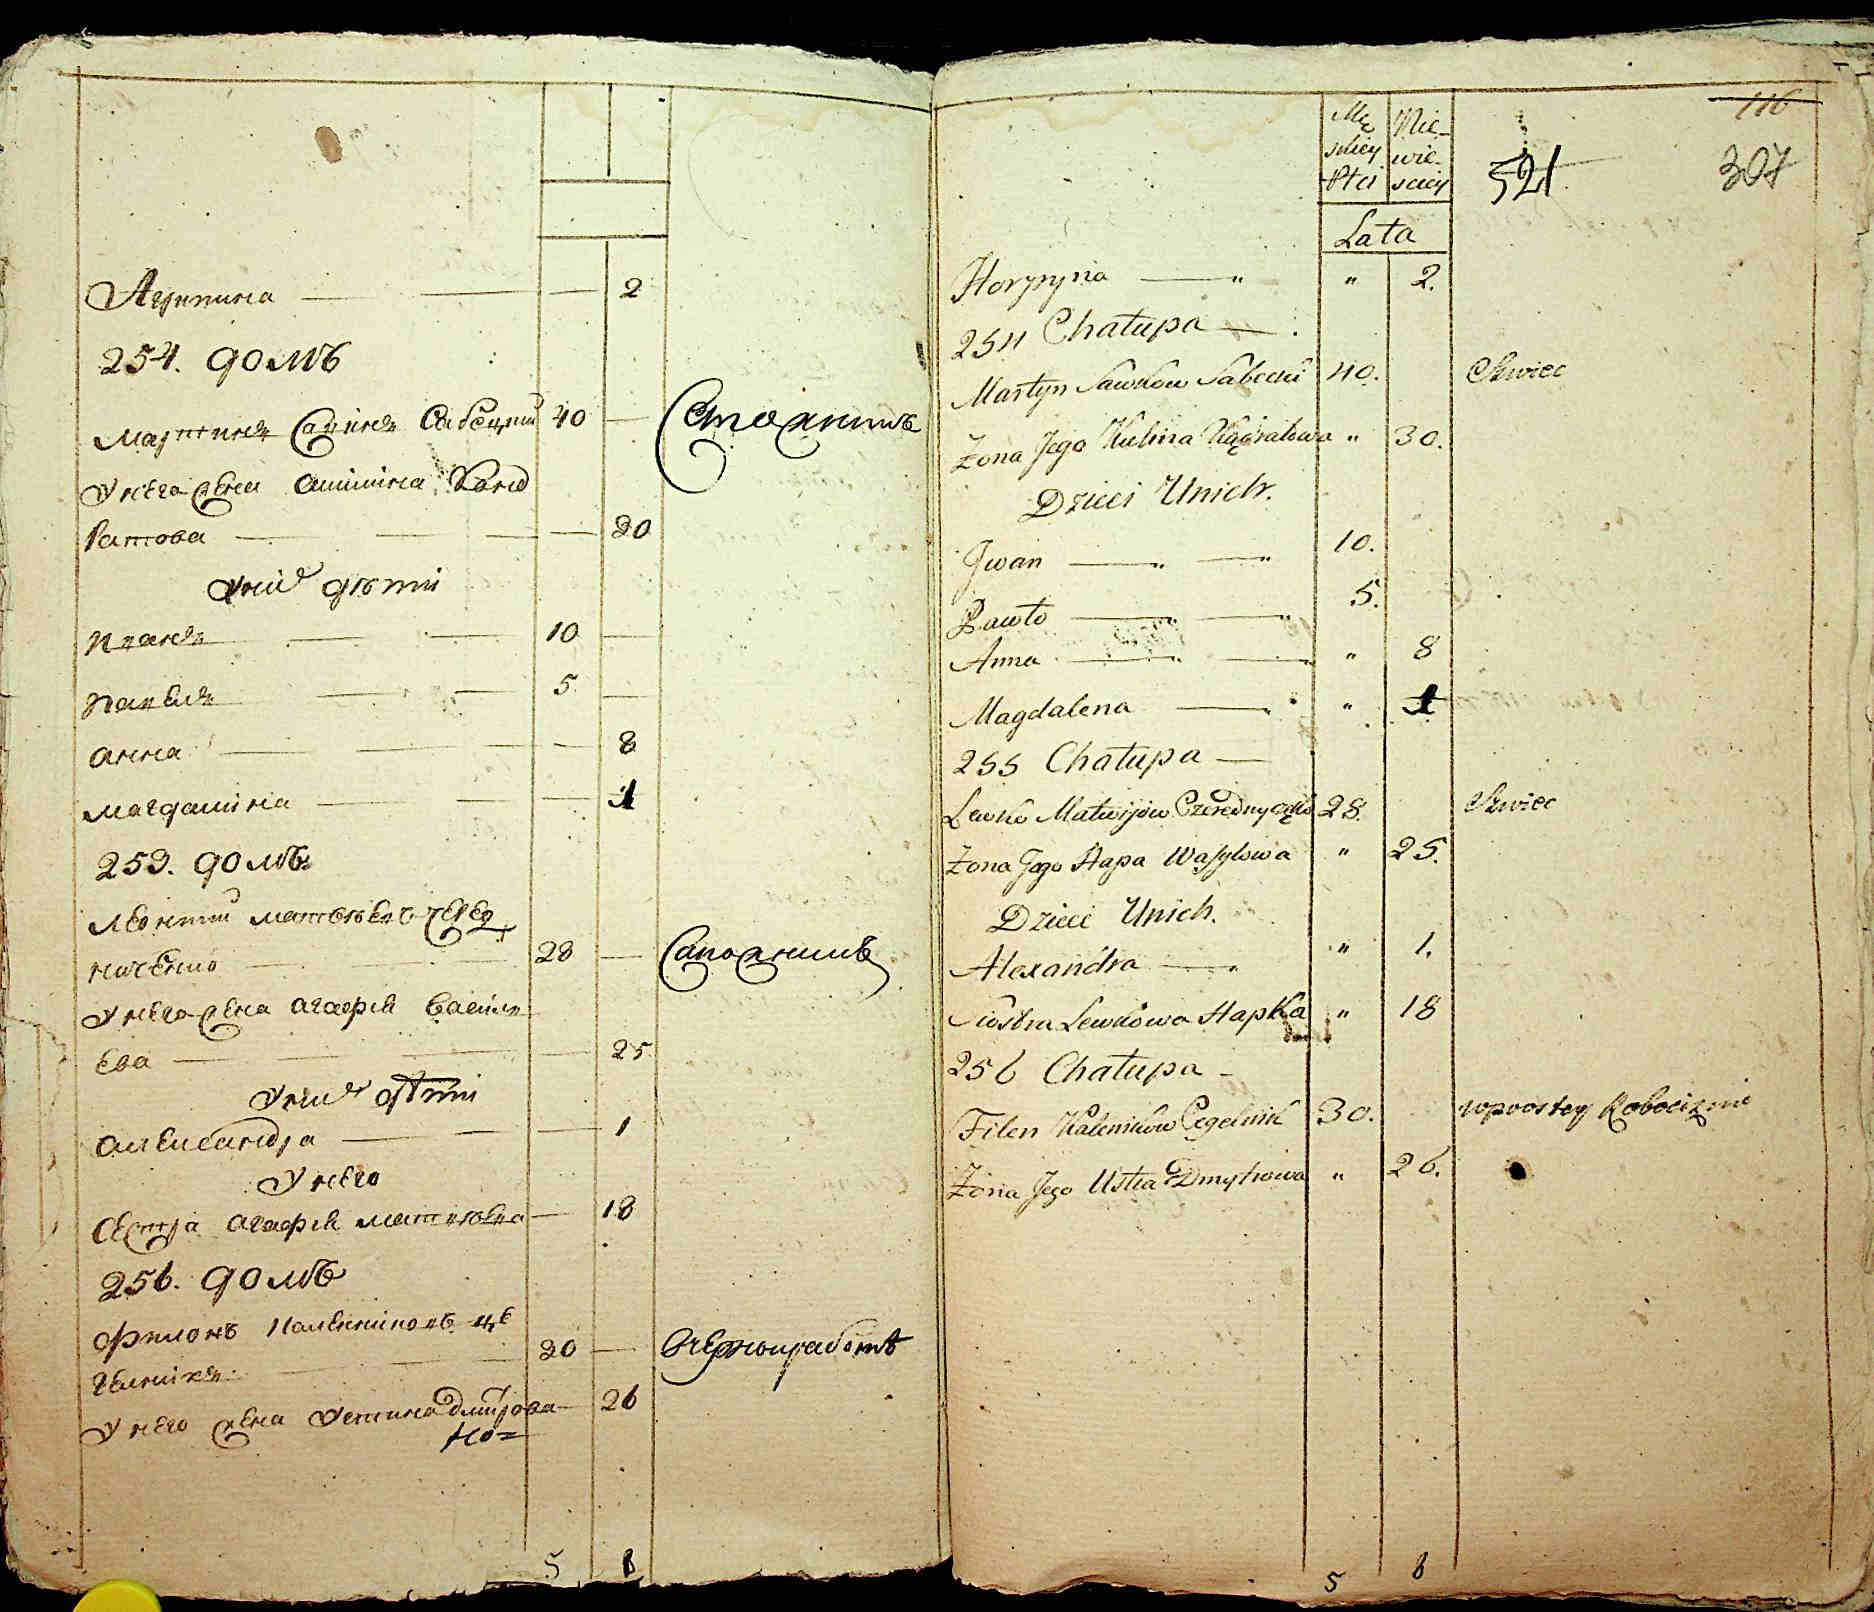 Агрипина — 2
254. домъ
Мартинъ Савинъ Сабецкий 40 — Сапожникъ
У него жена Акилина Конд
ратова — 30
У них дѣти
Иванъ — 10 —
Павелъ — 5 —
Анна — 8
Магдалина — 1
255. домъ
Леонтий Матвѣевъ Черед
ниченко — 28 — Сапожникъ
У него жена Агафия Василь
ева — 25
У них дѣти
Александра — 1
У него
сестра Агафия Матвѣева — 18
256. домъ
Филонъ Калениковъ Це
гелникъ — 30 — В чернои работѣ
У него жена Устина Дмитрова — 26
5 8
116
Męskiey Płci Niewiesciey 521 307
Lata
Horpyna — " " 2.
254 Chałupa —
Martyn Sawków Sabecki 40. Szwiec
Żona Jego Kulina Kądratowa " 30.
Dzieci Unich.
Jwan — " — " 10.
Pawło — " — " 5.
Anna — " — " " 8
Magdalena — " " 1
255 Chałupa —
Lewko Matwijów Czerednyczęko 28. Szwiec
Żona Jego Hapa Wasylowa " 25.
Dzieci Unich.
Alexandra — " " 1.
Siostra Lewkowa Hapka " 18
256 Chałupa —
Filon Kalenikow Cegelnik 30. w prostey Robociznie
Żona Jego Ustia Dmytrowa " 26.
5 8